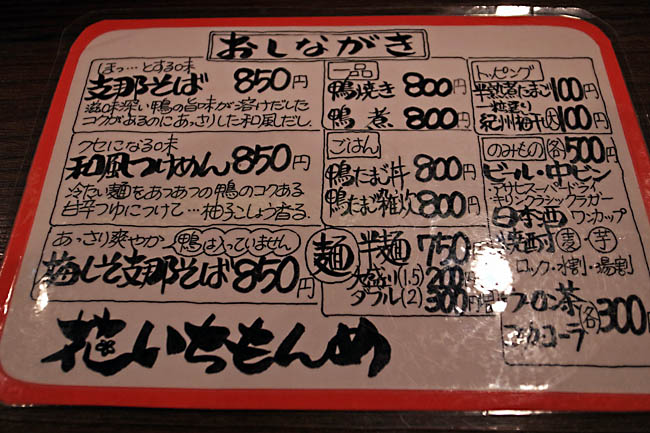 おしながき
ほっ…とする味
支那そば 850円
滋味深い鴨の旨味が溶けだした
コクがあるのにあっさりした和風だし
クセになる味
和風つけめん 850円
冷たい麺をあつあつの鴨のコクある
甘辛つゆにつけて…柚子こしょう香る
あっさり爽やか 鴨は入っていません
梅しそ支那そば 850円
花いちもんめ
一品
鴨焼き 800円
鴨煮 800円
ごはん
鴨たま丼 800円
鴨たま雑炊 800円
麺
半麺 750円
大盛り(1.5) 200円
ダブル(2) 300円
トッピング
半熟煮たまご 100円
紀州梅干 大 100円
のみもの 各500円
ビール・中ビン
アサヒスーパードライ
キリンクラシックラガー
日本酒 ワンカップ
焼酎 麦 芋
ロック・水割・湯割
ウーロン茶
コカコーラ
各300円